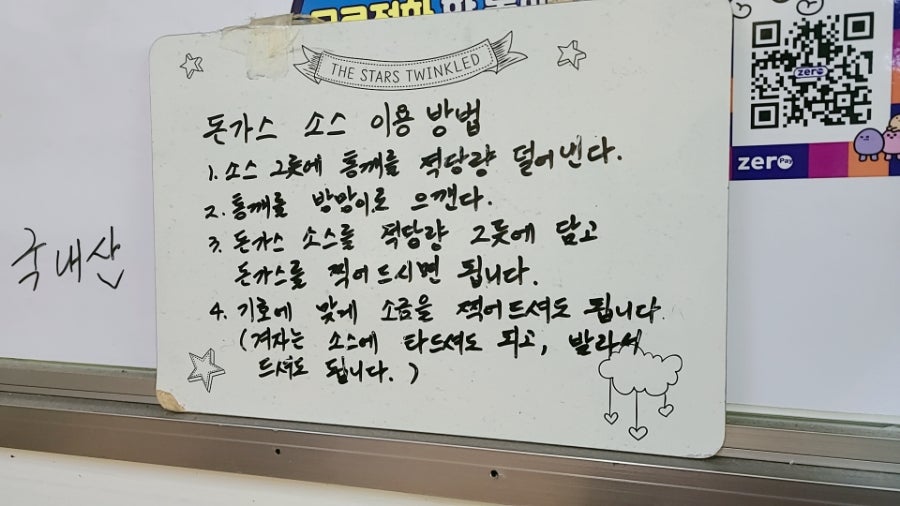 THE STARS TWINKLED
zero
돈가스 소스 이용 방법
1. 소스 그릇에 통깨를 적당량 덜어낸다.
2. 통깨를 방망이로 으깬다.
zero Pay
3. 돈가스 소스를 적당량 그릇에 담고
돈가스를 찍어 드시면 됩니다.
국내산
4. 기호에 맞게 소금을 찍어드셔도 됩니다
(겨자는 소스에 타드셔도 되고, 발라서
드셔도 됩니다.)